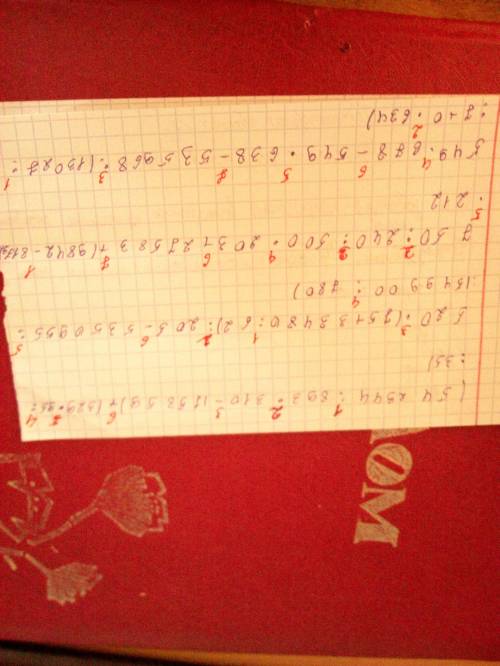 (54 2944 : 893 · 310 - 1158 59) + (329 · 95 :
: 35)
520 · (7513 3480 : 62) : 205 - 5350955 :
154 99 00 : 780)
7 50 : 240 : 500 · 2030 + 27583 + (9842 - 815
: 212
549 · 678 - 549 · 638 - 535968 : (15027 :
: 7 + 0 · 634)
ОМ